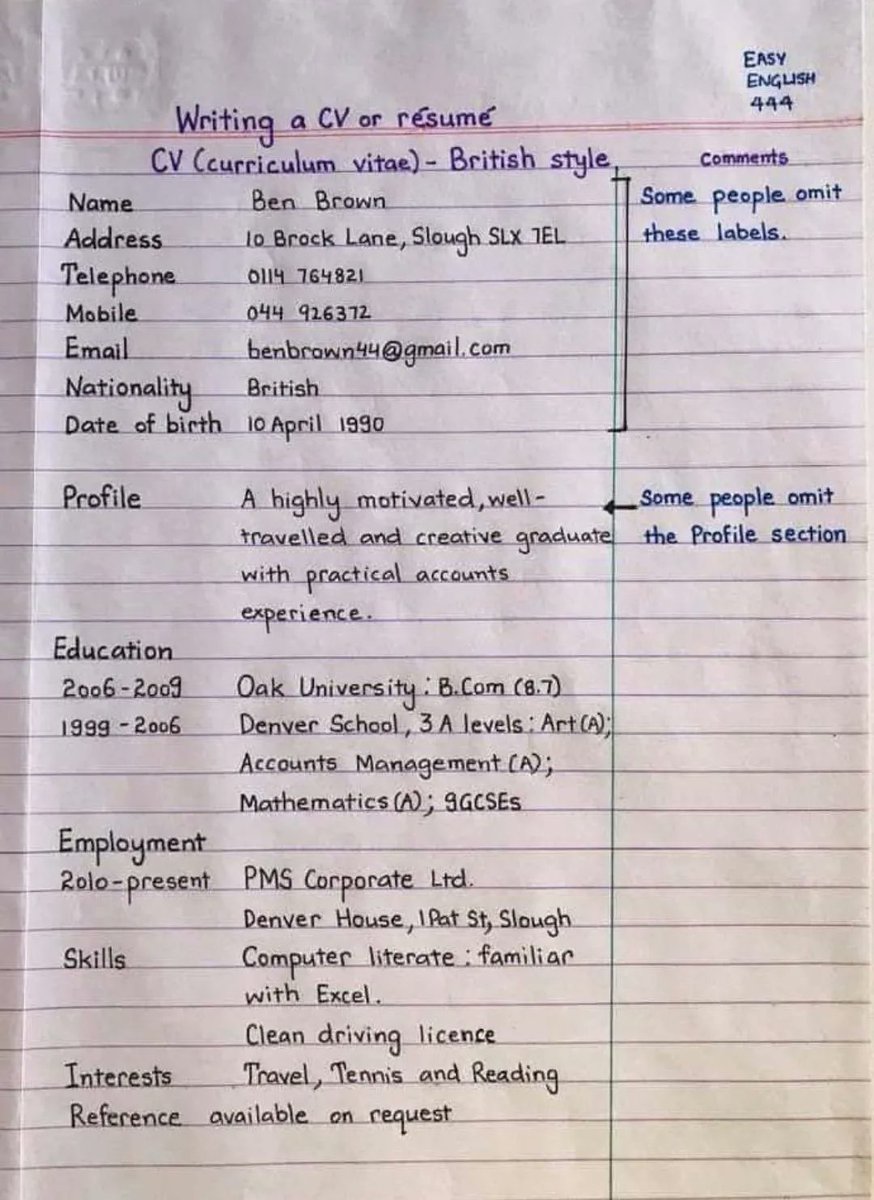 EASY
ENGLISH
444
Writing a CV or résumé
CV (curriculum vitae) - British style
Comments
Name Ben Brown
Some people omit
Address 10 Brock Lane, Slough SLX 7EL
these labels.
Telephone 0114 764821
Mobile 044 926372
Email benbrown44@gmail.com
Nationality British
Date of birth 10 April 1990
Profile A highly motivated, well-
Some people omit
travelled and creative graduate
the Profile section
with practical accounts
experience.
Education
2006-2009 Oak University : B.Com (8.7)
1999-2006 Denver School, 3 A levels : Art (A);
Accounts Management (A);
Mathematics (A); 9GCSEs
Employment
2010-present PMS Corporate Ltd.
Denver House, 1 Pat St, Slough
Skills Computer literate : familiar
with Excel.
Clean driving licence
Interests Travel, Tennis and Reading
Reference available on request